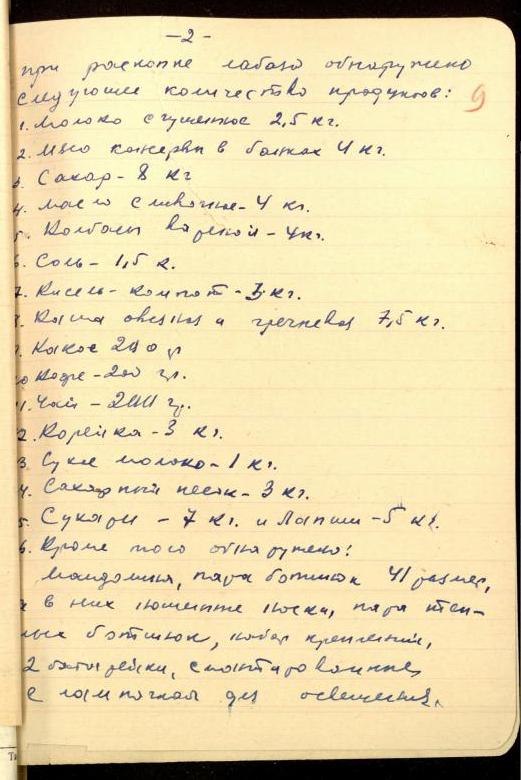 -2-
при раскопке лабаза обнаружено
следующее количество продуктов: 9
1. Молоко сгущеное 2,5 кг.
2. мясо консервы в банках 4 кг.
3. Сахар - 8 кг
4. масло сливочное - 4 кг.
5. Колбасы вареной - 4кг.
6. Соль - 1,5 к.
7. Кисель - компот - 3 кг.
8. Каша овсяная и гречневая 7,5 кг.
9. Какао 200 гр
10 Кофе - 200 гр.
11. Чай - 200 гр.
12. Корейка - 3 кг.
13. Сухое молоко - 1 кг.
14. Сахарный песок - 3 кг.
15. Сухари - 7 кг. и Лапши - 5 кг.
16. Кроме того обнаружено:
Мандолина, пара ботинок 41 размер,
а в них ношенные носки, пара
ных ботинок, набор креплений,
2 батарейки, смонтированные
с лампочкой для освещения.